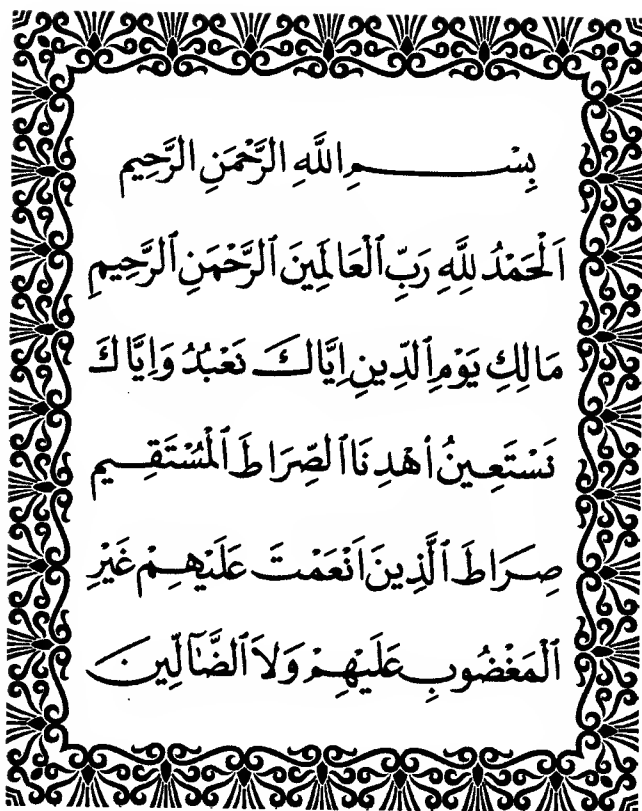 بِسْمِ اللَّهِ الرَّحْمَنِ الرَّحِيم
اَلْحَمْدُ لِلَّهِ رَبِّ ٱلْعَالَمِينَ ٱلرَّحْمَنِ ٱلرَّحِيمِ
مَالِكِ يَوْمِ ٱلدِّينِ اِيَّاكَ نَعْبُدُ وَاِيَّاكَ
نَسْتَعِينُ ٱهْدِنَا ٱلصِّرَاطَ ٱلْمُسْتَقِيم
صِرَاطَ ٱلَّذِينَ اَنْعَمْتَ عَلَيْهِمْ غَيْرِ
ٱلْمَغْضُوبِ عَلَيْهِمْ وَلاَ ٱلضَّآلِّينَ